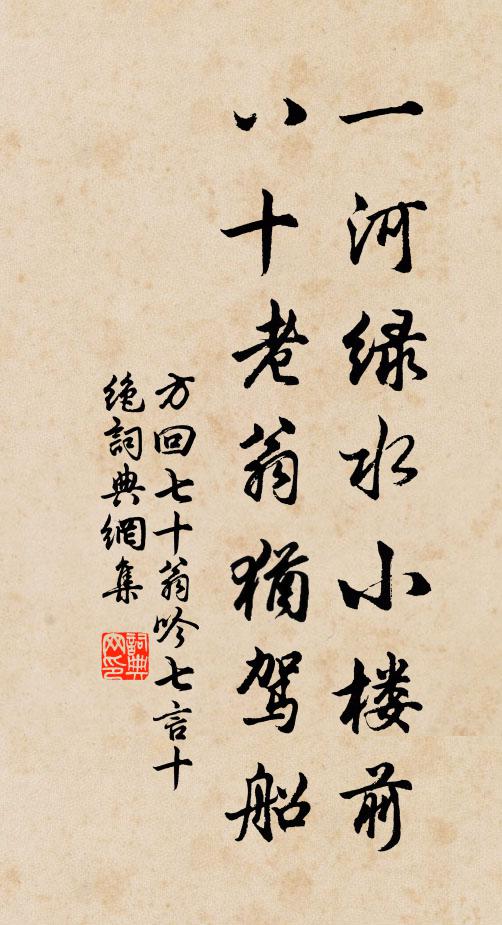 一河绿水小楼前
八十老翁犹驾船
方回七十翁吟七言十
絶詞典網集
詞典网印